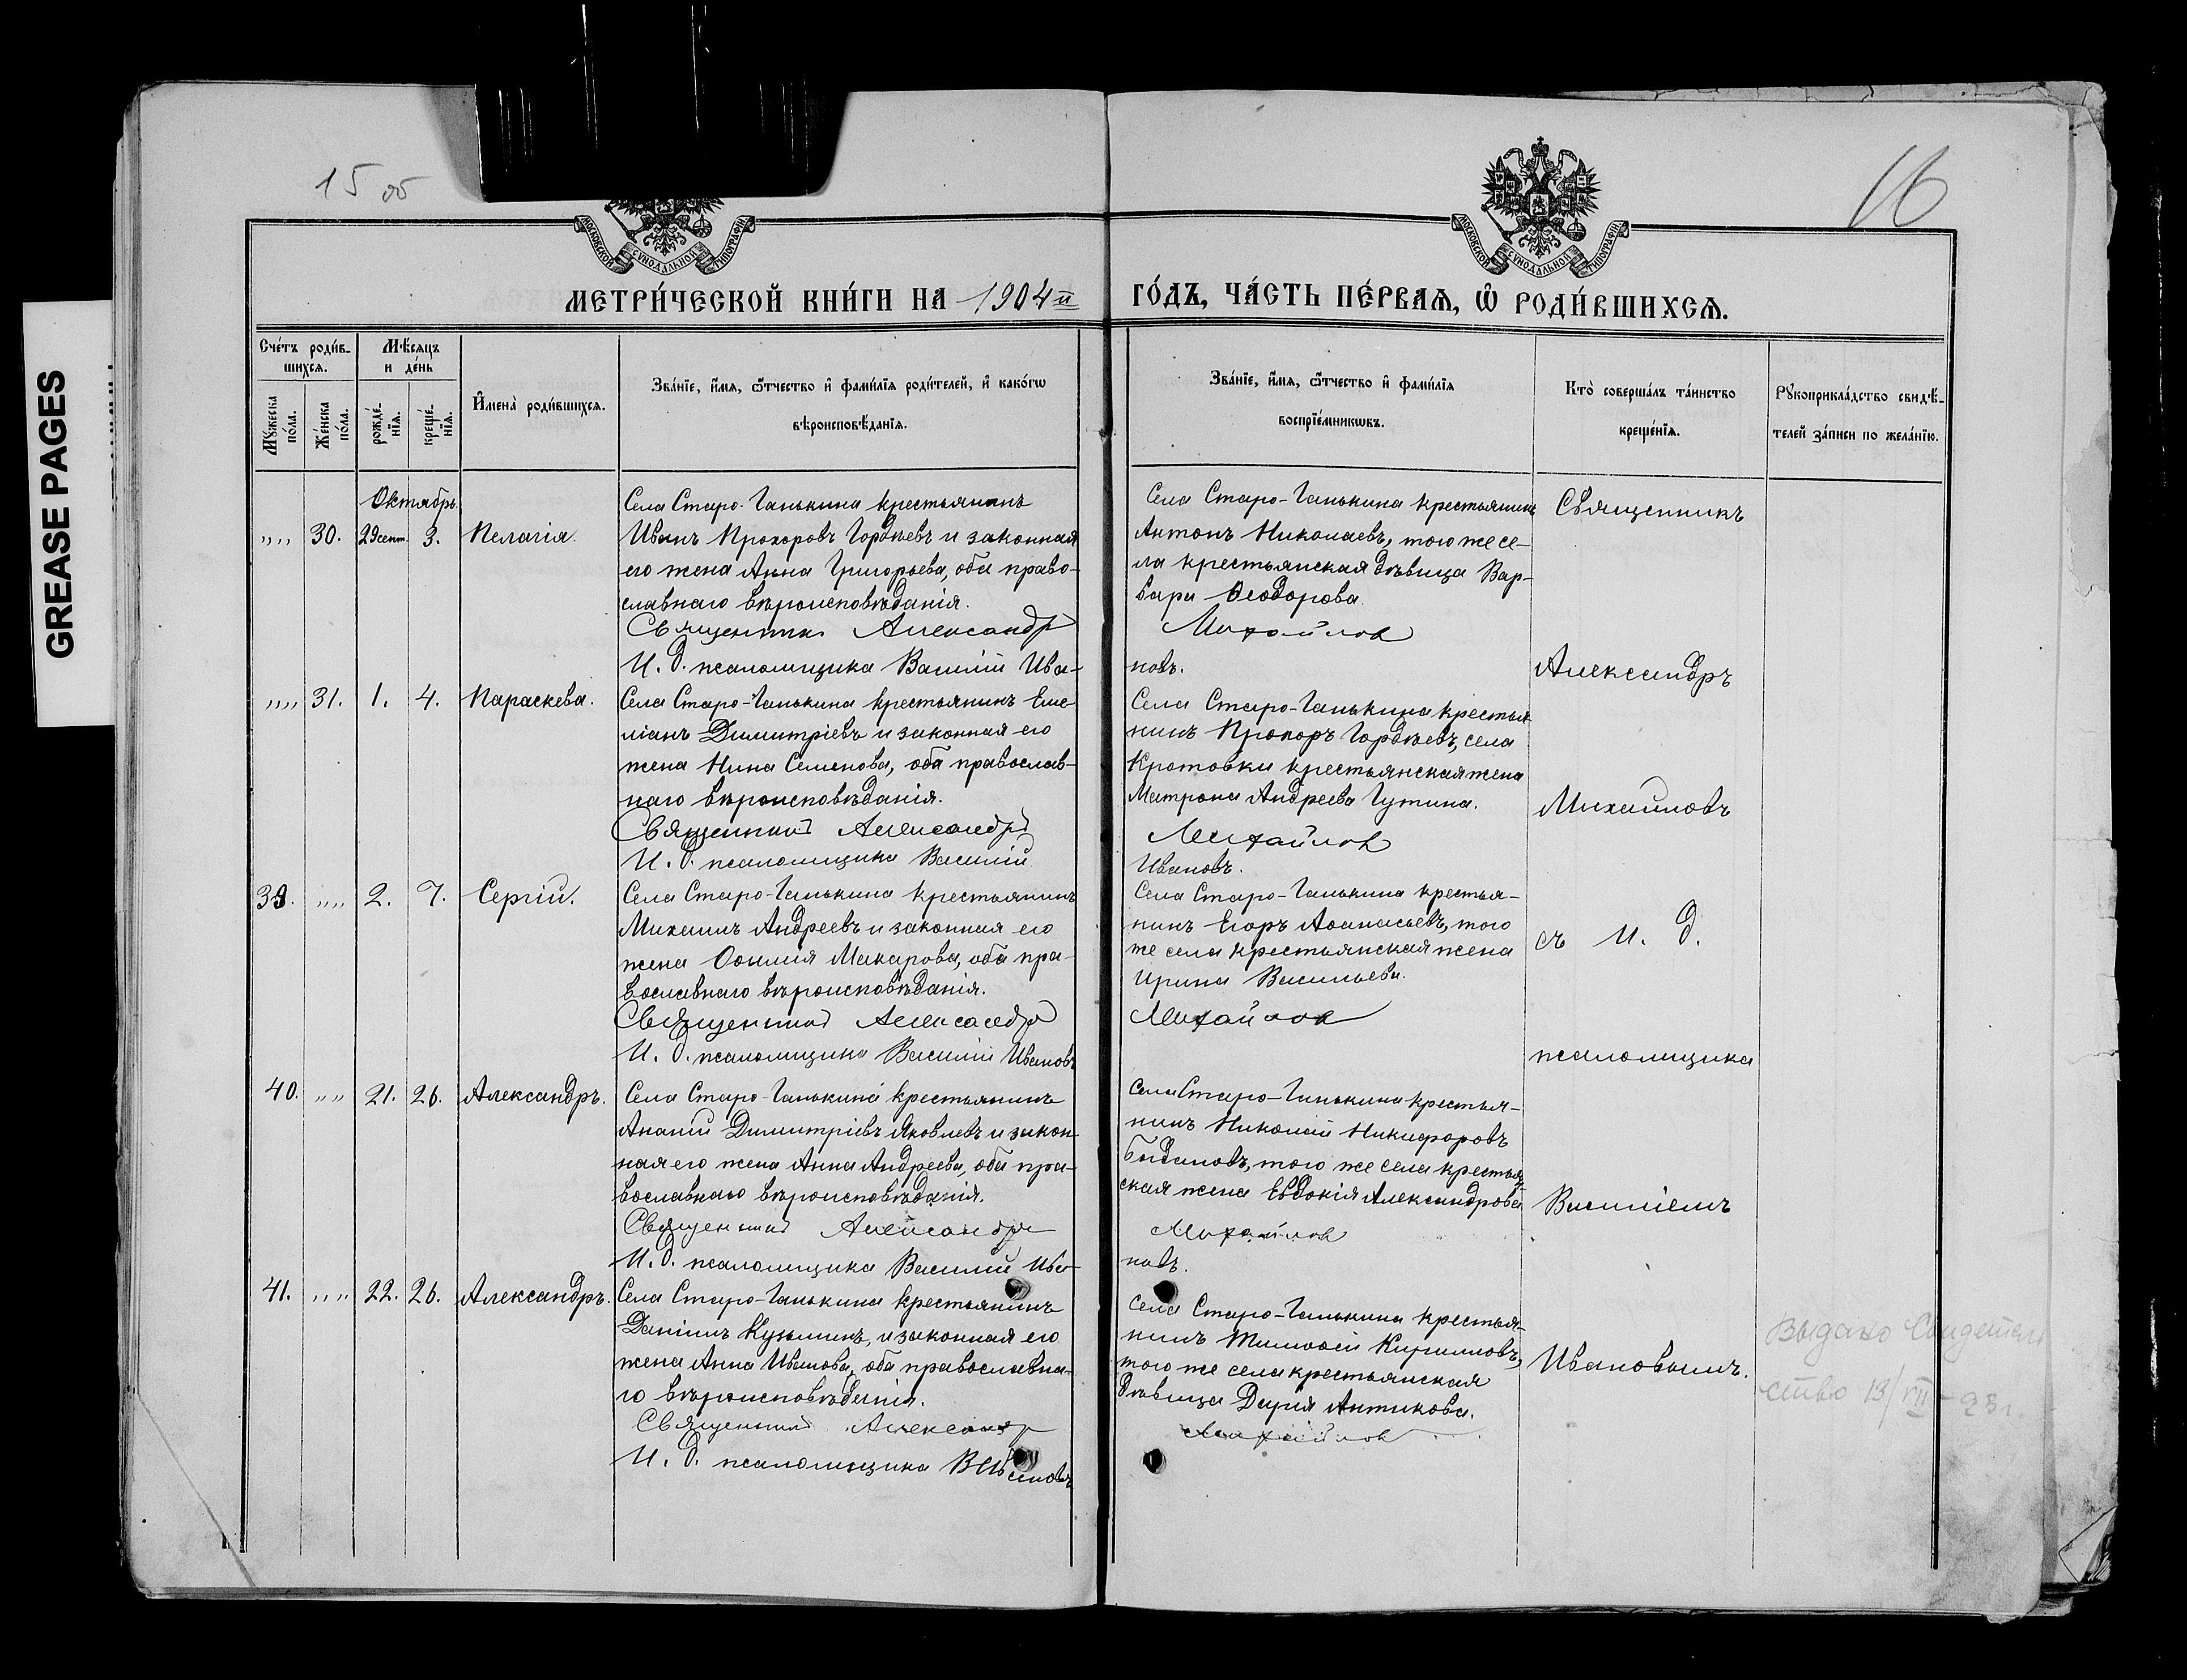 GREASE PAGES
15 об
16
МОСКОВСКОЙ СѴНОДАЛЬНОЙ ТИПОГРАФІИ
МОСКОВСКОЙ СѴНОДАЛЬНОЙ ТИПОГРАФІИ
МЕТРИ́ЧЕСКОЙ КНИ́ГИ НА 1904й
ГО́ДЪ, ЧА́СТЬ ПЕ́РВАѦ, Ѽ РОДИ́ВШИХСѦ.
Сче́тъ роди́в-
шихсѧ.
Мѣ́сѧцъ
и де́нь
Мꙋ́жеска
по́ла.
Же́нска
по́ла.
рожде́-
нїѧ.
креще́-
нїѧ.
И҆мена̀ роди́вшихсѧ.
Зва́нїе, и҆́мѧ, ѻ҆́тчество и҆ фами́лїѧ роди́телей, и҆ како́гѡ
вѣроисповѣ́данїѧ.
Зва́нїе, и҆́мѧ, ѻ҆́тчество и҆ фами́лїѧ
воспрїе́мникѡвъ.
Кто̀ соверша́лъ та́инство
креще́нїѧ.
Рꙋкоприкла́дство свидѣ́-
телей за́писи по жела́нїю.
Октябрь
„„ 30. 29 сент. 3. Пелагія.
Села Старо-Ганькина крестьянинъ
Иванъ Прохоровъ Гордѣевъ и законная
его жена Анна Григорьева, оба право-
славнаго вѣроисповѣданія.
Священник Александр
И. д. псаломщика Василій Ива-
Села Старо-Ганькина крестьянинъ
Антонъ Николаевъ, того же се-
ла крестьянская дѣвица Вар-
вара Ѳеодорова
Михайлов
новъ.
„„ 31. 1. 4. Параскева.
Села Старо-Ганькина крестьянинъ Еме-
ліанъ Димитріевъ и законная его
жена Нина Семенова, оба православ-
наго вѣроисповѣданія.
Священник Александр
И. д. псаломщика Василій
Села Старо-Ганькина крестья
нинъ Прохоръ Гордѣевъ, села
Кротовки крестьянская жена
Матрона Андреева Гутина.
Михайлов
Ивановъ.
39. „„ 2. 7. Сергій.
Села Старо-Ганькина крестьянинъ
Михаилъ Андреевъ и законная его
жена Ѳоимія Макарова, оба пра-
вославнаго вѣроисповѣданія.
Священник Александр
И. д. псаломщика Василій Ивановъ
Села Старо-Ганькина крестья-
нинъ Егоръ Аѳанасьевъ, того
же села крестьянская жена
Ирина Васильева.
Михайлов
40. „„ 21. 26. Александръ.
Села Старо-Ганькина крестьянинъ
Ананій Димитріевъ Яковлевъ и закон-
ная его жена Анна Андреева, оба пра-
вославнаго вѣроисповѣданія.
Священник Александр
И. д. псаломщика Василій Ива-
Села Старо-Ганькина крестья-
нинъ Николай Никифоровъ
того же села крестьян
ская жена Евдокія Александрова
Михайлов
новъ.
41. „„ 22. 26. Александръ.
Села Старо-Ганькина крестьянинъ
Даніилъ Кузьминъ, и законная его
жена Анна Иванова, оба православна-
го вѣроисповѣданія.
Священник Александр
И. д. псаломщика В Ивановъ
Села Старо-Ганькина крестья-
нинъ Тимоѳей Кирилловъ,
того же села крестьянская
дѣвица Дарія Антикова.
Михайлов
Священникъ
Александръ
Михайловъ
съ И. д.
псаломщика
Василіемъ
Ивановымъ.
Выдано Свидетель
ство 13/VII-23г.